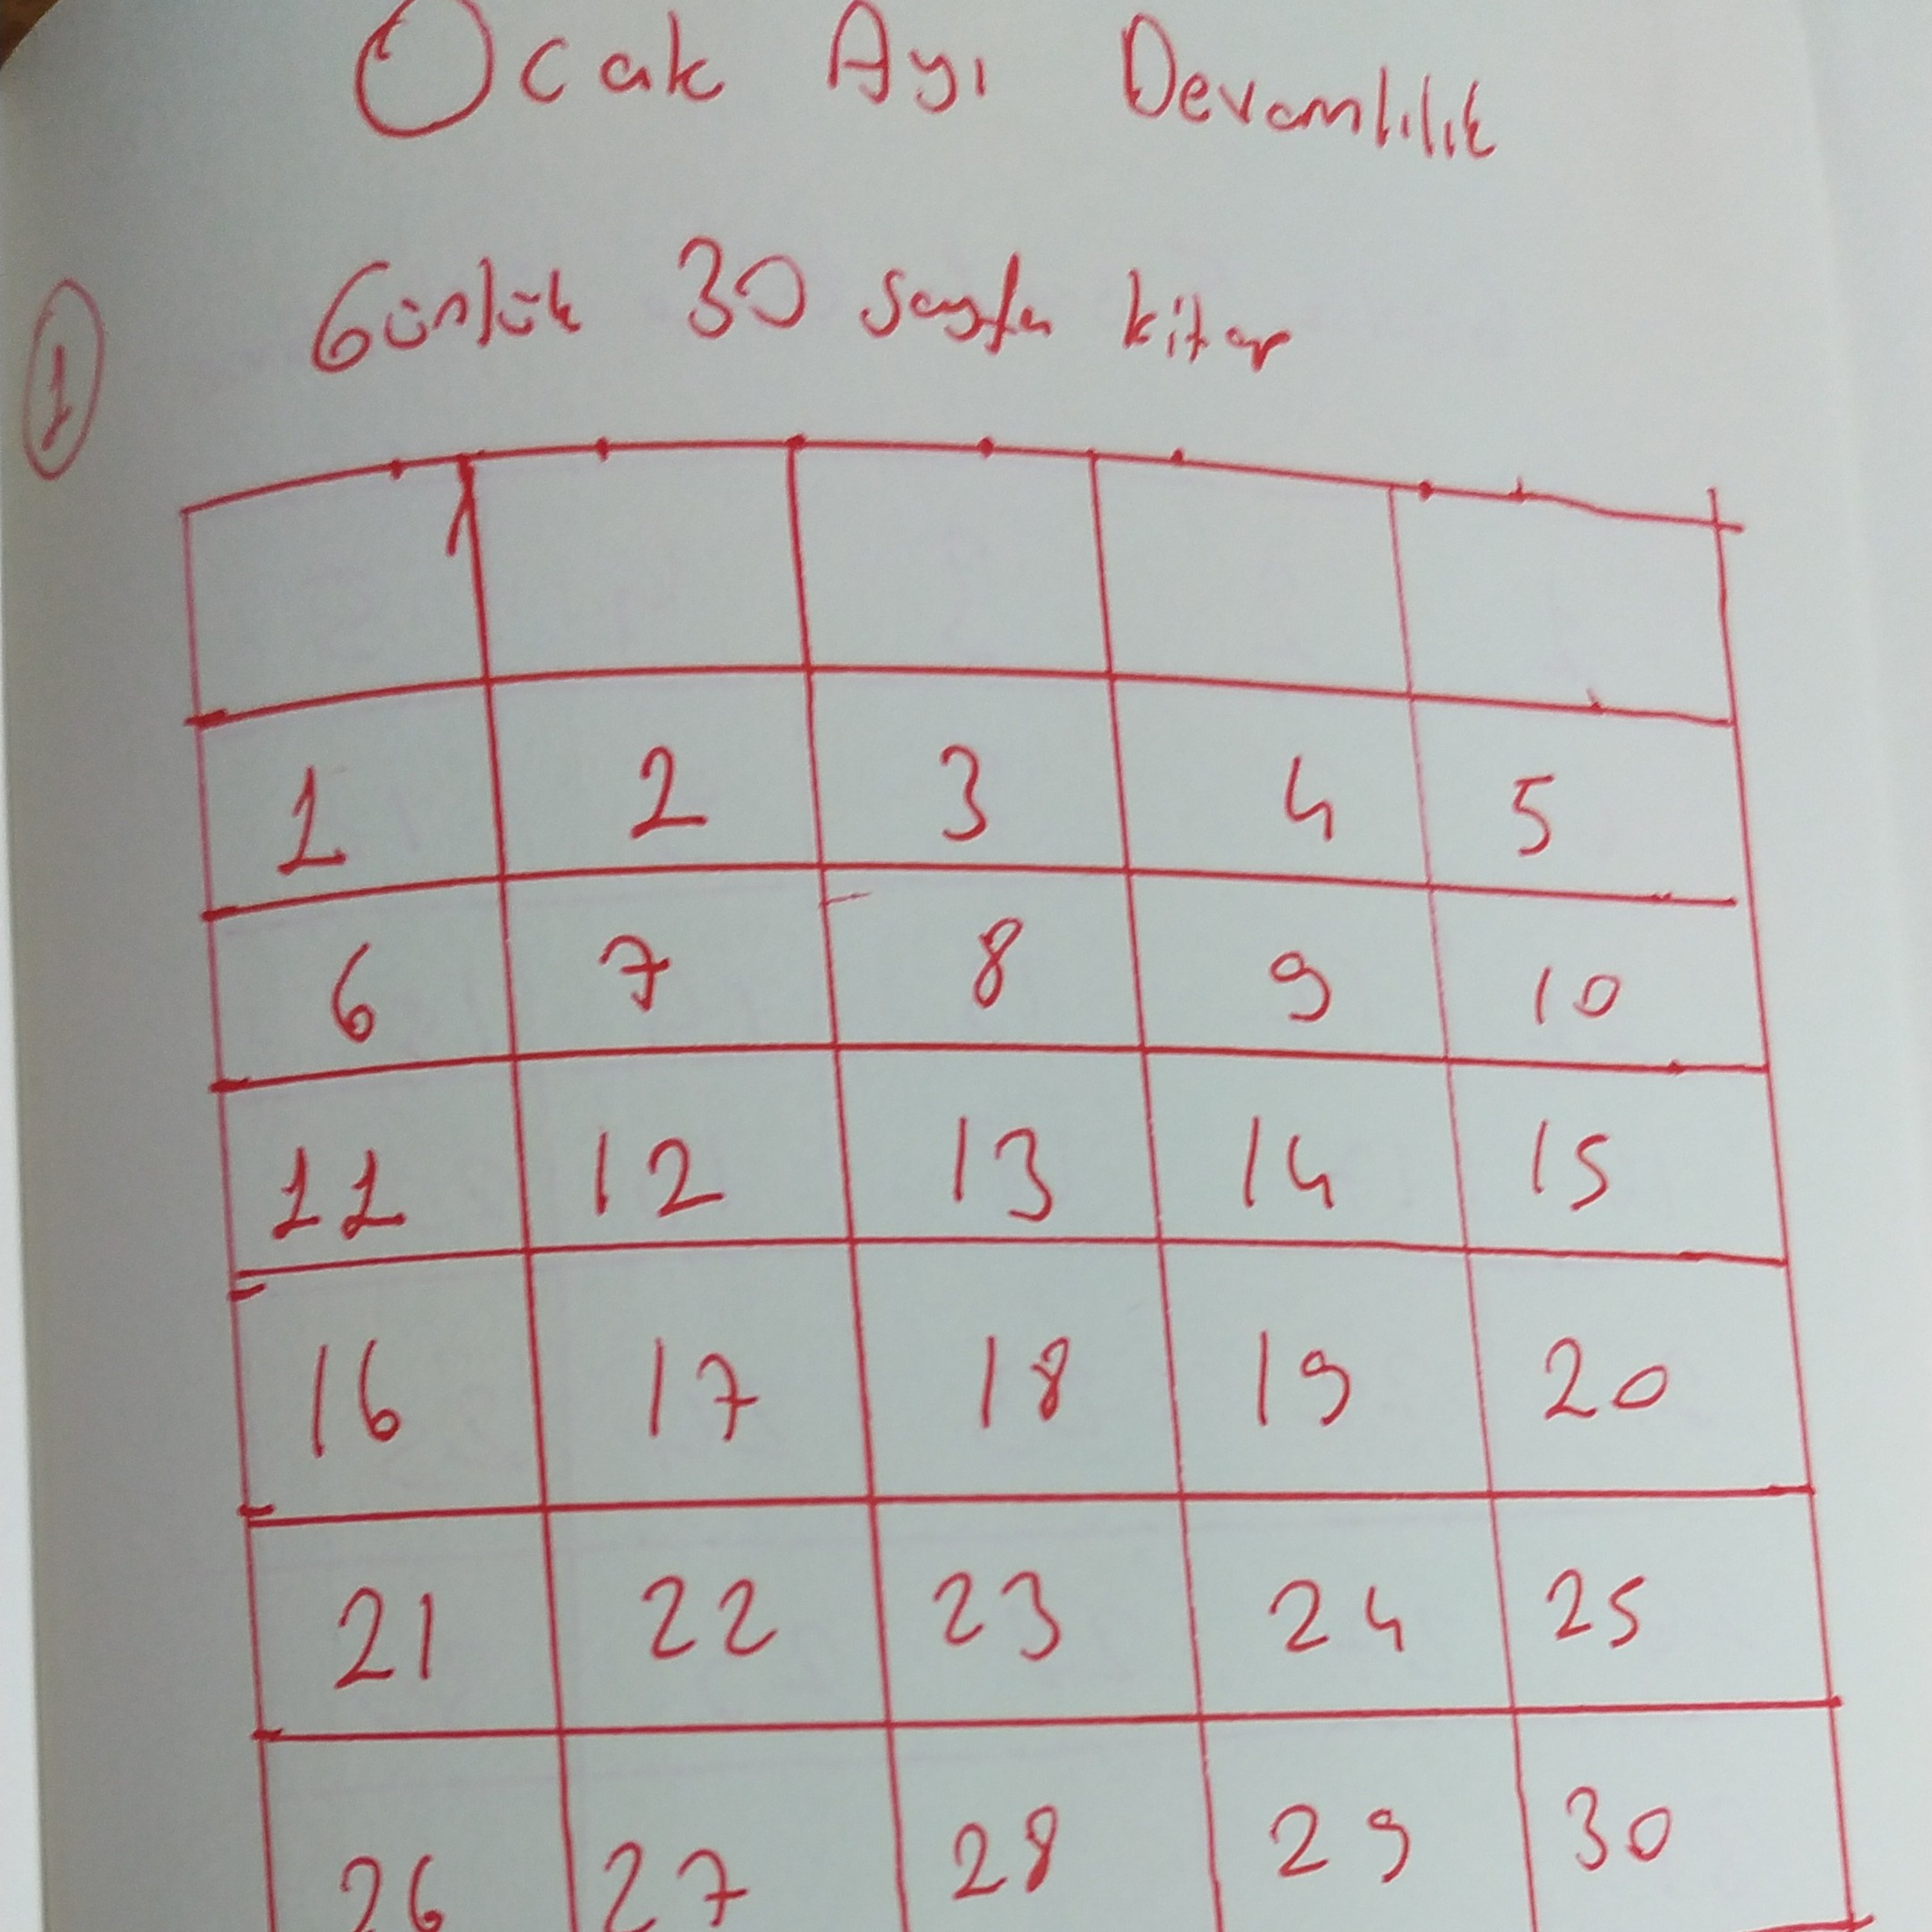 Ocak Ayı Devamlılık
1 Günlük 30 sayfa kitap
1 2 3 4 5
6 7 8 9 10
11 12 13 14 15
16 17 18 19 20
21 22 23 24 25
26 27 28 29 30